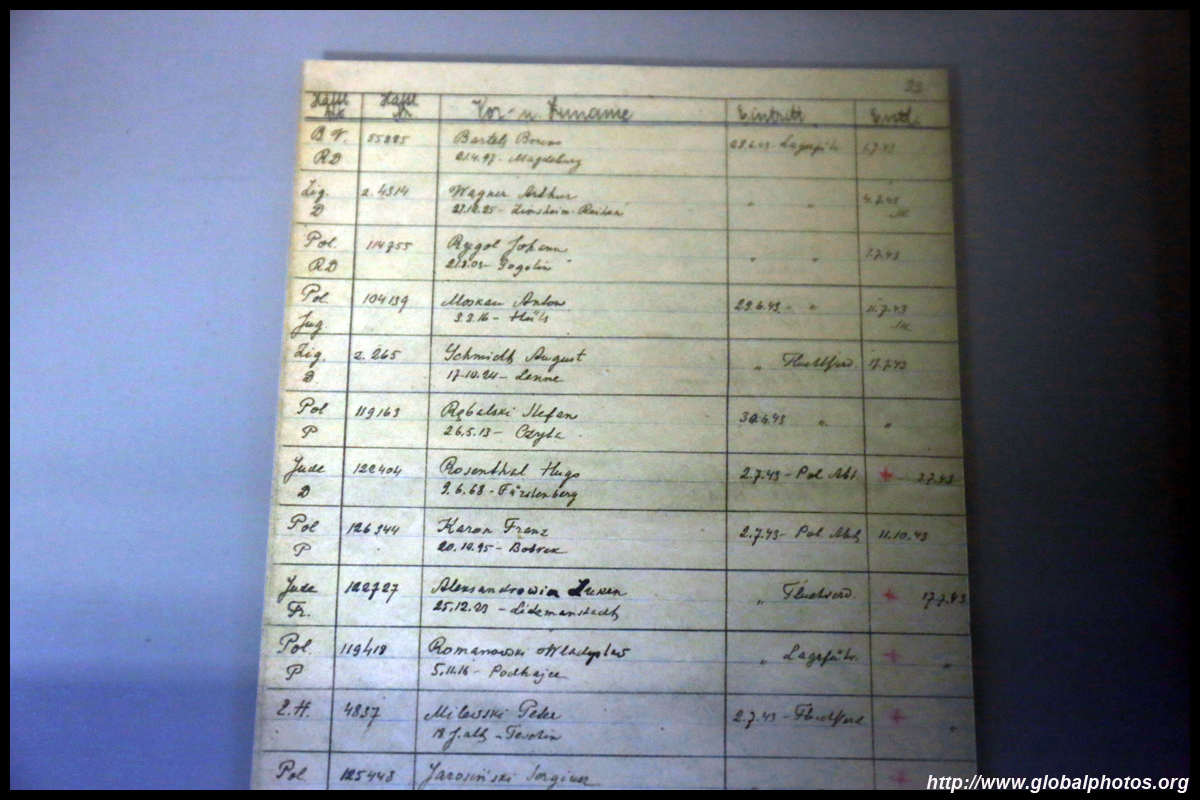 23
Häftl Häftl Vor- u. Zuname Eintritt Entl
Art Nr
B V. 55885 Bartels Bruno 28.6.43 - Lagerfüh. 1.7.43
RD 21.4.97 - Magdeburg
Zig. z. 4314 Wagner Arthur " " 4.7.43
D
Pol. 114755 Rygol Johann " " 2.7.43
RD 21.3.05 - Gogolin
Pol 104139 Moskau Anton 29.6.43. - " 11.7.43
Jug 3.3.16 -
Zig. z. 265 Schmidt August " 17.7.43
D 17.10.24 - Lenne
Pol 119163 Rębalski Stefan 30.6.43 " "
P 26.5.13 - Czyta
Jude 122404 Rosenthal Hugo 2.7.43 - Pol Abt + 2.7.43
D 9.6.68 - Fürstenberg
Pol 126344 Karon Franz 2.7.43 - Pol Abt 11.10.43
P 20.10.95 - Bobrek
Jude 122727 Aleksandrowia " Fluchtverd. + 17.7.43
Fr. 25.12.23 - Litzmanstadt
Pol. 119418 Romanowski Wladyslaw " Lagerfüh. + "
P 5.11.16 - Podhajce
E.H. 4837 Milewski Peter 2.7.43 - Fluchtverd + "
18 J. alt -
Pol 125443 Jarosiński Sergiusz +
http://www.globalphotos.org